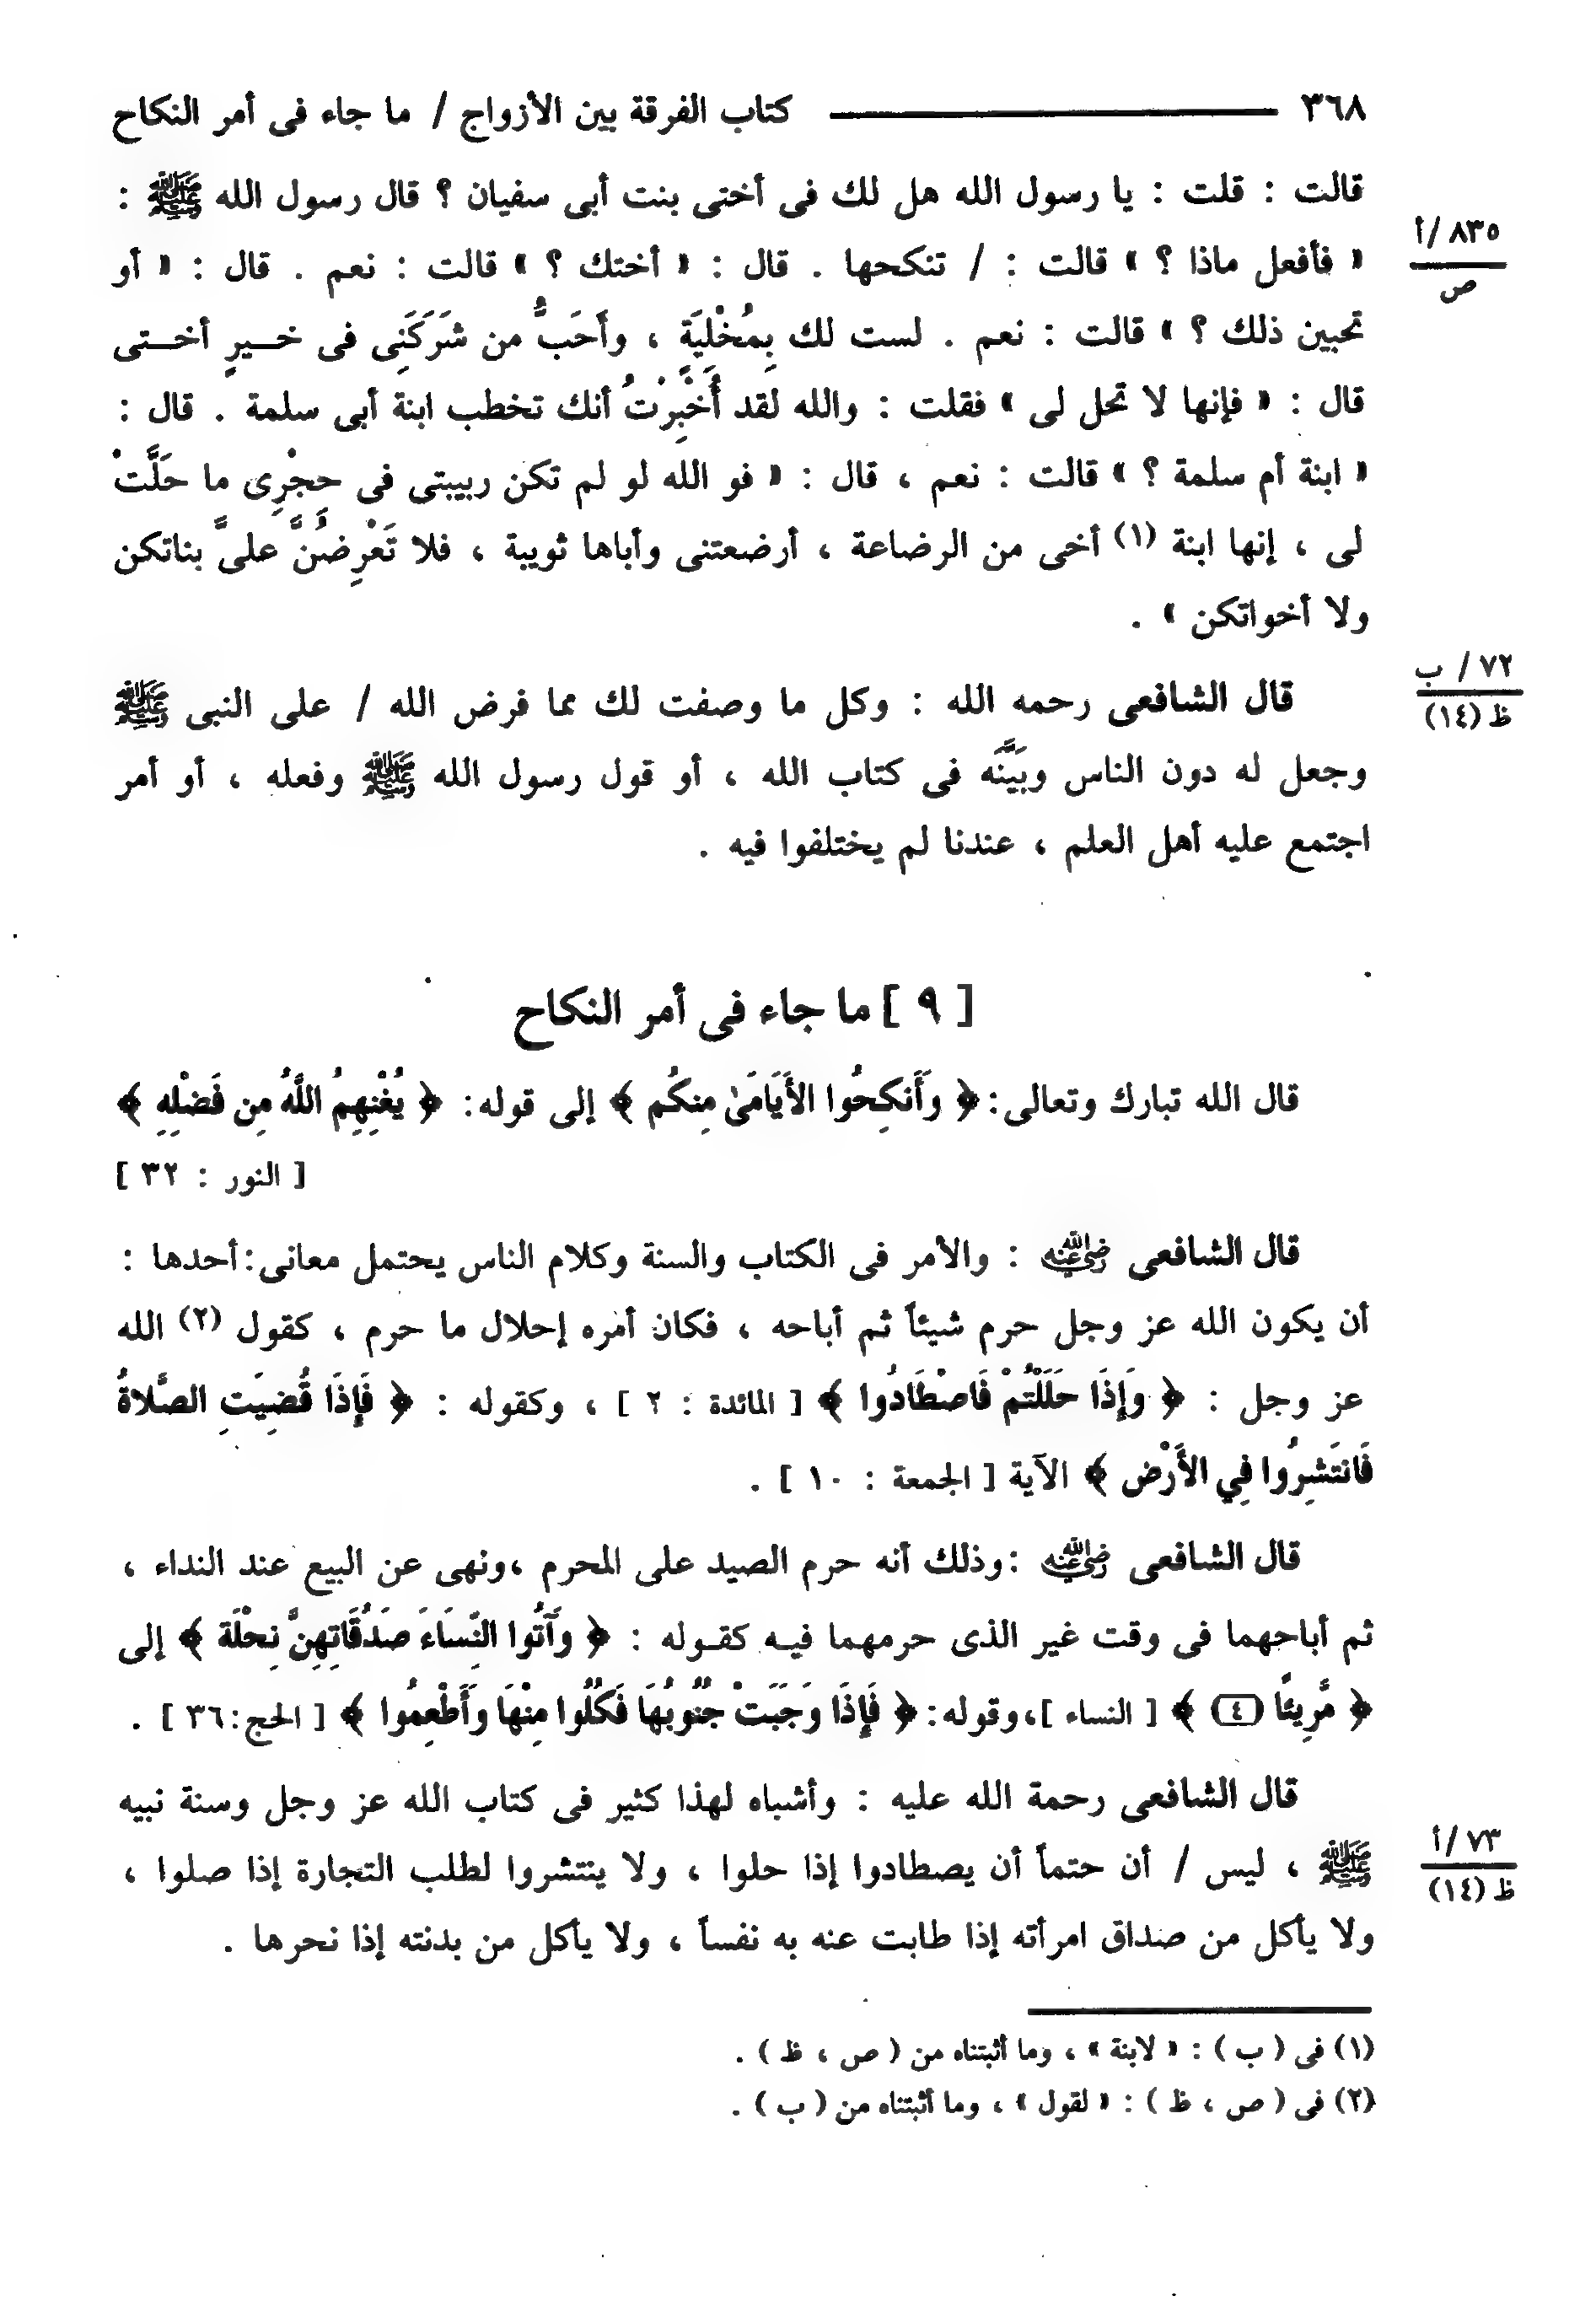 ٣٦٨ ــــــــ كتاب الفرقة بين الأزواج / ما جاء فى أمر النكاح
قالت : قلت : يا رسول الله هل لك فى أختى بنت أبى سفيان ؟ قال رسول الله ﷺ :
٨٣٥ /أ
ص
« فأفعل ماذا ؟ » قالت : / تنكحها . قال : « أختك ؟ » قالت : نعم . قال : « أو
تحبين ذلك ؟ » قالت : نعم . لست لك بِمُخْلِيَةٍ ، وأَحَبُّ من شَرَكَنِى فى خــيرٍ أخــتى
قال : « فإنها لا تحل لى » فقلت : والله لقد أُخْبِرْتُ أنك تخطب ابنة أبى سلمة . قال :
« ابنة أم سلمة ؟ » قالت : نعم ، قال : « فو الله لو لم تكن ربيبتى فى حِجْرِى ما حَلَّتْ
لى ، إنها ابنة (١) أخى من الرضاعة ، أرضعتنى وأباها ثويبة ، فلا تَعْرِضُنَّ علىَّ بناتكن
ولا أخواتكن » .
٧٢ / ب
ظ (١٤)
قال الشافعى رحمه الله : وكل ما وصفت لك مما فرض الله / على النبى ﷺ
وجعل له دون الناس وبَيَّنَه فى كتاب الله ، أو قول رسول الله ﷺ وفعله ، أو أمر
اجتمع عليه أهل العلم ، عندنا لم يختلفوا فيه .
[ ٩ ] ما جاء فى أمر النكاح
قال الله تبارك وتعالى: ﴿ وَأَنكِحُوا الأَيَامَىٰ مِنكُم ﴾ إلى قوله: ﴿ يُغْنِهِمُ اللَّهُ مِن فَضْلِهِ ﴾
[ النور : ٣٢ ]
قال الشافعى رضي الله عنه : والأمر فى الكتاب والسنة وكلام الناس يحتمل معانى: أحدها :
أن يكون الله عز وجل حرم شيئاً ثم أباحه ، فكان أمره إحلال ما حرم ، كقول (٢) الله
عز وجل : ﴿ وَإِذَا حَلَلْتُمْ فَاصْطَادُوا ﴾ [ المائدة : ٢ ] ، وكقوله : ﴿ فَإِذَا قُضِيَتِ الصَّلاةُ
فَانتَشِرُوا فِي الأَرْضِ ﴾ الآية [ الجمعة : ١٠ ] .
قال الشافعى رضي الله عنه : وذلك أنه حرم الصيد على المحرم ، ونهى عن البيع عند النداء ،
ثم أباحهما فى وقت غير الذى حرمهما فيــه كقــوله : ﴿ وَآتُوا النِّسَاءَ صَدُقَاتِهِنَّ نِحْلَة ﴾ إلى
﴿ مَّرِيئًا (٤) ﴾ [ النساء ]، وقوله: ﴿ فَإِذَا وَجَبَتْ جُنُوبُهَا فَكُلُوا مِنْهَا وَأَطْعِمُوا ﴾ [ الحج: ٣٦ ] .
قال الشافعى رحمة الله عليه : وأشباه لهذا كثير فى كتاب الله عز وجل وسنة نبيه
٧٣ /أ
ظ (١٤)
ﷺ ، ليس / أن حتماً أن يصطادوا إذا حلوا ، ولا ينتشروا لطلب التجارة إذا صلوا ،
ولا يأكل من صداق امرأته إذا طابت عنه به نفساً ، ولا يأكل من بدنته إذا نحرها .
(١) فى ( ب ) : « لابنة » ، وما أثبتناه من ( ص ، ظ ) .
(٢) فى ( ص ، ظ ) : « لقول » ، وما أثبتناه من ( ب ) .